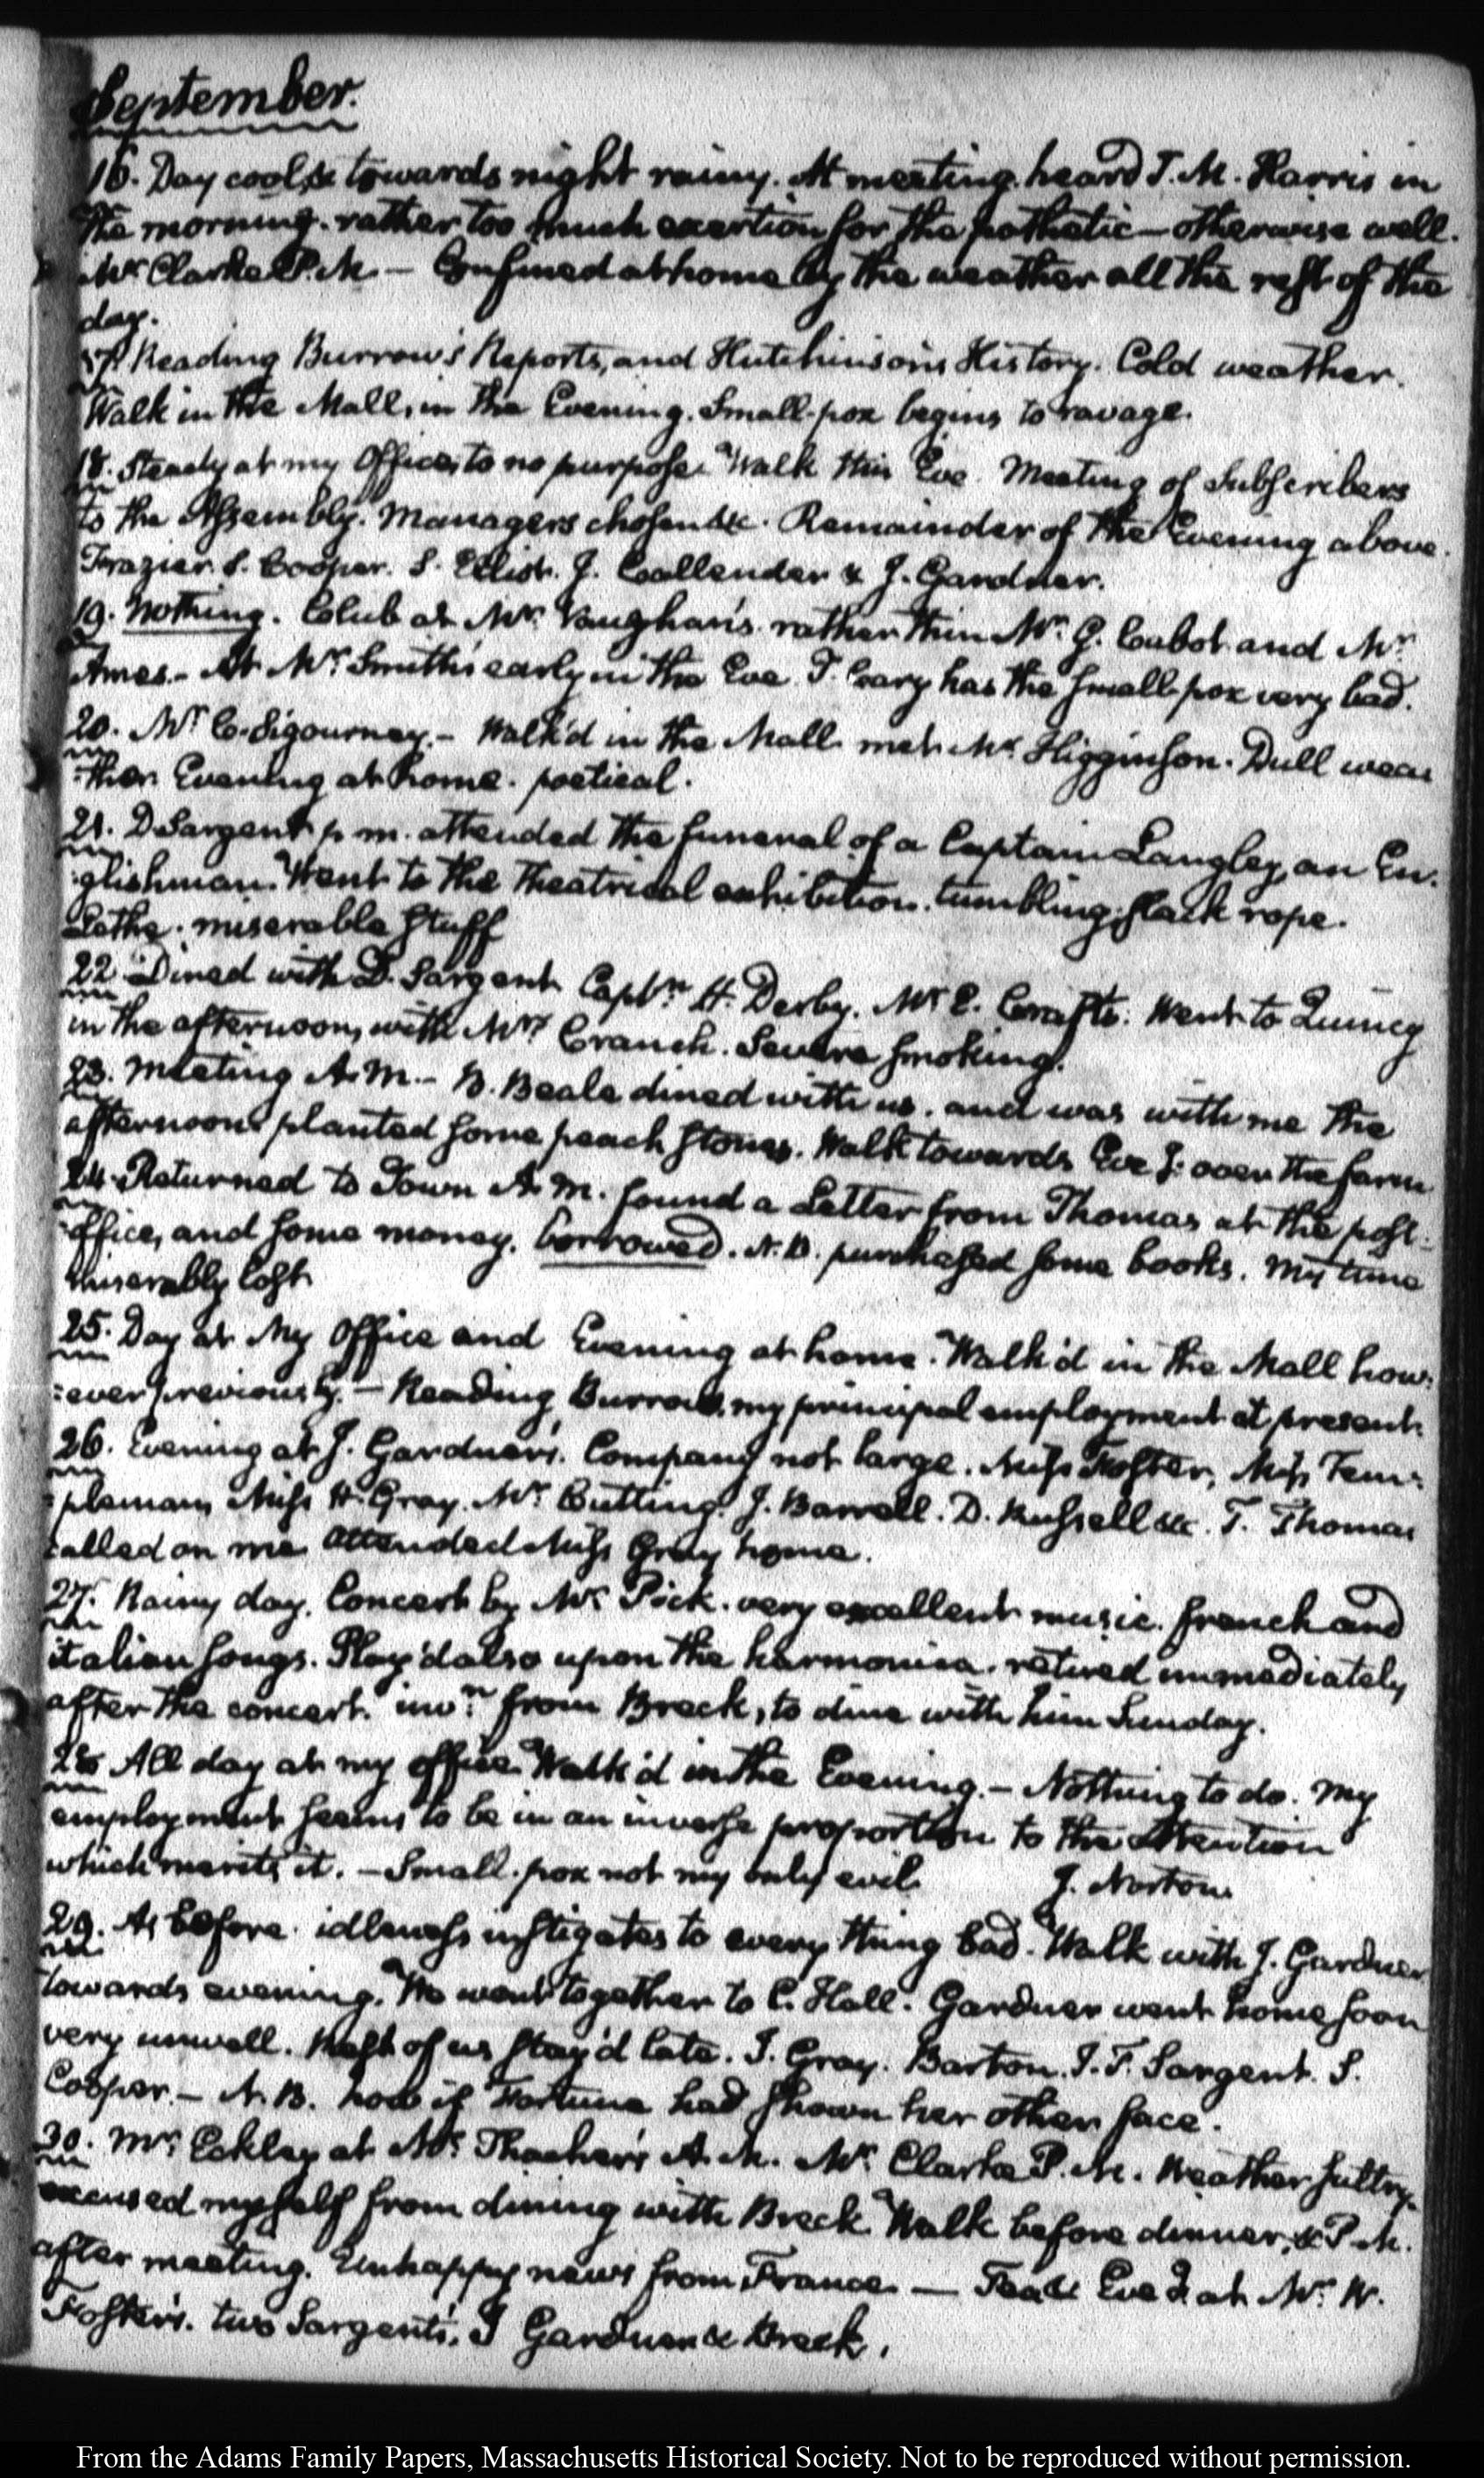 September.
16. Day cool, & towards night rainy. At meeting. heard T. M. Harris in
the morning. rather too much exertion for the pathetic — otherwise well.
Mr. Clarke P.M. — Confined at home by the weather all the rest of the
day.
17. Reading Burrow's Reports, and Hutchinson's History. Cold weather.
Walk in the Mall, in the Evening. Small-pox begins to ravage.
18. Steady at my Office, to no purpose. Walk this Eve. Meeting of Subscribers
to the Assembly. Managers chosen &c. Remainder of the Evening above.
Frazier. S. Cooper. S. Eliot. J. Callender & J. Gardner.
19. Nothing. Club at Mr. Vaughan's. rather thin Mr. G. Cabot and Mr.
Ames. — At Mr. Smith's early in the Eve. T. Cary has the small-pox very bad.
20. Mr C. Sigourney. — Walk'd in the Mall. met Mr. Higginson. Dull wea
:ther. Evening at home. poetical.
21. D Sargent p.m. attended the funeral of a Captain Langley, an En:
:glishman. Went to the Theatrical exhibition. tumbling. slack rope.
Lethe. miserable stuff
22 Dined with D. Sargent Captn. H. Derby. Mr E. Crafts. Went to Quincy
in the afternoon, with Mrs Cranch. Severe smoking.
23. Meeting A.M. — B. Beale dined with us. and was with me the
afternoon. planted some peach stones. Walk towards Eve over the farm
24. Returned to Town A.M. found a Letter from Thomas at the post-
office, and some money. borrowed. N.B. purchased some books. My time
miserably lost
25. Day at My Office and Evening at home. Walk'd in the Mall how:
:ever previously. — Reading Burrow, my principal employment at present.
26. Evening at J. Gardner's. Company not large. Miss Foster, Miss Tem:
:pleman, Miss H. Gray. Mr. Cutting. J. Barrell. D. Russell &c. T. Thomas
called on me. attended Miss Gray home.
27. Rainy day. Concert by Mr. Pick. very excellent music. french and
italian songs. Play'd also upon the harmonica. retired immediately
after the concert. invn. from Breck, to dine with him Sunday.
28 All day at my office. Walk'd in the Evening. — Nothing to do. My
employment seems to be in an inverse proportion to the attention
which merits it. — Small-pox not my only evil. J. Norton.
29. As before. idleness instigates to every thing bad. Walk with J. Gardner
towards evening. We went together to C. Hall. Gardner went home soon
very unwell. Rest of us stay'd late. J. Gray. Barton. J. F. Sargent. S.
Cooper. — N.B. how if Fortune had shown her other face.
30. Mr. Eckley at Mr. Thacher's A.M. Mr. Clarke P.M. Weather sultry.
excused myself from dining with Breck. Walk before dinner, & P.M.
after meeting. Unhappy news from France. — Tea & Eve at Mr. W.
Foster's. two Sargents', J Gardner & Breck.
From the Adams Family Papers, Massachusetts Historical Society. Not to be reproduced without permission.